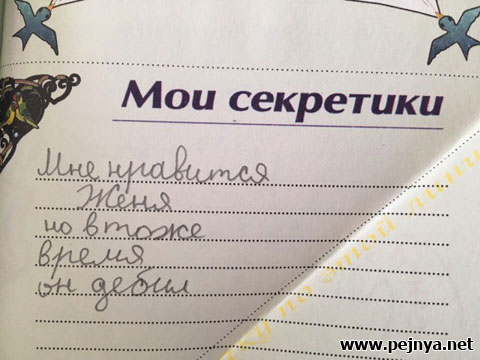 Мои секретики
Мне нравится
Женя
но в тоже
время
он дебил
www.pejnya.net